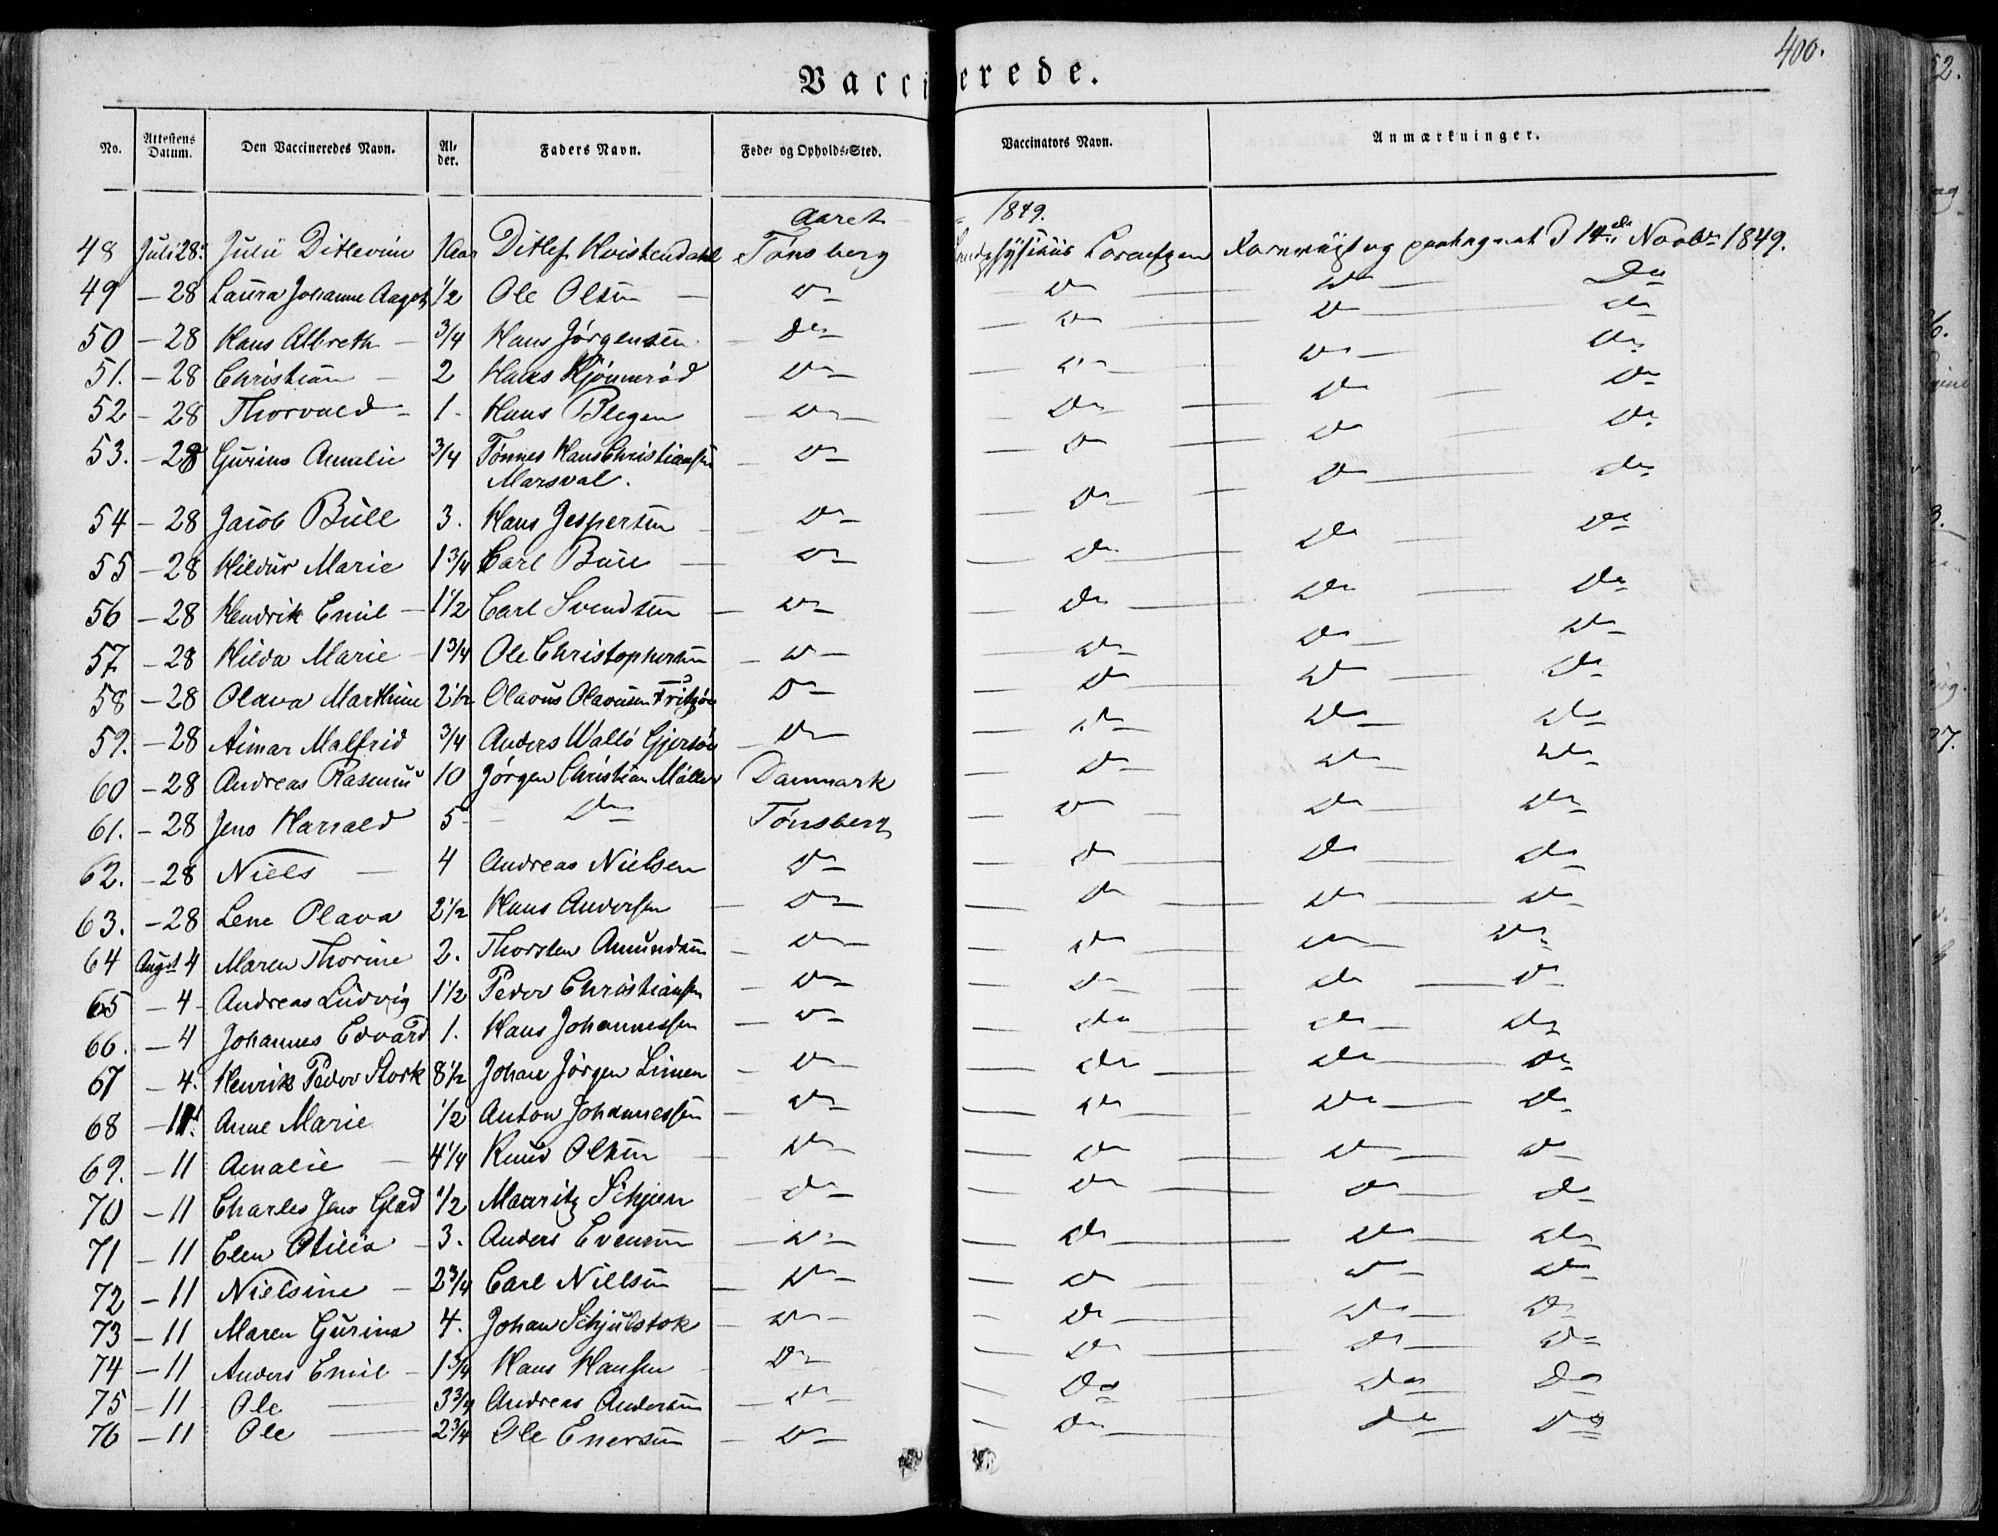 400.
Vaccinerede.
No. Attestens Datum. Den Vaccineredes Navn. Alder. Faders Navn. Føde- og Opholds-Sted. Vaccinators Navn. Anmærkninger.
Aaret 1849.
48 Juli 28. Julie Ditlevine 1 Aar Ditlef Hvistendahl Tønsberg Lorentzen 14de Novbr 1849.
49 – 28 Laura Johanne Aagot 1/2 Ole Olsen – Do Do Do Do
50 – 28 Hans Albreth – 3/4 Hans Jørgensen – Do Do Do Do
51. – 28 Christian – 2 Hans Do Do Do Do
52 – 28 Thorvald – 1 – Hans Do Do Do Do
53. – 28 Gurine Amalie 3/4 Tønnes Hans Christiansen – Do Do Do Do
Marsval.
54 – 28 Jacob Bull 3. Hans Jespersen – Do Do Do Do
55 – 28 Hildur Marie 1 3/4 Carl Bull – Do Do Do Do
56 – 28 Hendrik Emil – 1 1/2 Carl Svendsen – Do Do Do Do
57 – 28 Hilda Marie – 1 3/4 Ole Christophersen – Do Do Do Do
58 – 28 Olava Marthine 2 1/2 Olavus Olavusen Do Do Do Do
59. – 28 Malfrid 3/4 Anders Wallø Gjertsen – Do Do Do Do
60 – 28 Andreas Rasmus 10 Jørgen Christian Møller Danmark Do Do Do
61. – 28 Jens Harald 5 – Do Tønsberg Do Do Do
62. – 28 Niels – 4 Andreas Nielsen Do Do Do Do
63. – 28 Lene Olava 2 1/2 Hans Andersen – Do Do Do Do
64 Augst 4 Maren Thorine 2. Thorsten Amundsen – Do Do Do Do
65 – 4 – Andreas Ludvig 1 1/2 Peder Christiansen – Do Do Do Do
66. – 4 Johannes Edvard 1. Hans Johannessen – Do Do Do Do
67 – 4. Henrik Peder Stork 8 1/2 Johan Jørgen Linien – Do Do Do Do
68 – 11. Anne Marie 1/2 Anton Johannessen – Do Do Do Do
69. – 11 Amalie – 4 1/4 Knud Olsen – Do Do Do Do
70 – 11 Charles Jens Glad 1/2 Mauritz Schjen – Do Do Do Do
71 – 11 Elen Otilia – 3. Anders Evensen – Do Do Do Do
72 – 11 Nielsine – 2 3/4 Carl Nielsen – Do Do Do Do
73 – 11 Maren Gurine 4. Johan Schjulstok – Do Do Do Do
74 – 11 Anders Emil – 1 3/4 Hans Hansen – Do Do Do Do
75 – 11 Ole – 3 3/4 Andreas Andersen – Do Do Do Do
76 – 11 Ole – 2 3/4 Ole Enersen – Do Do Do Do